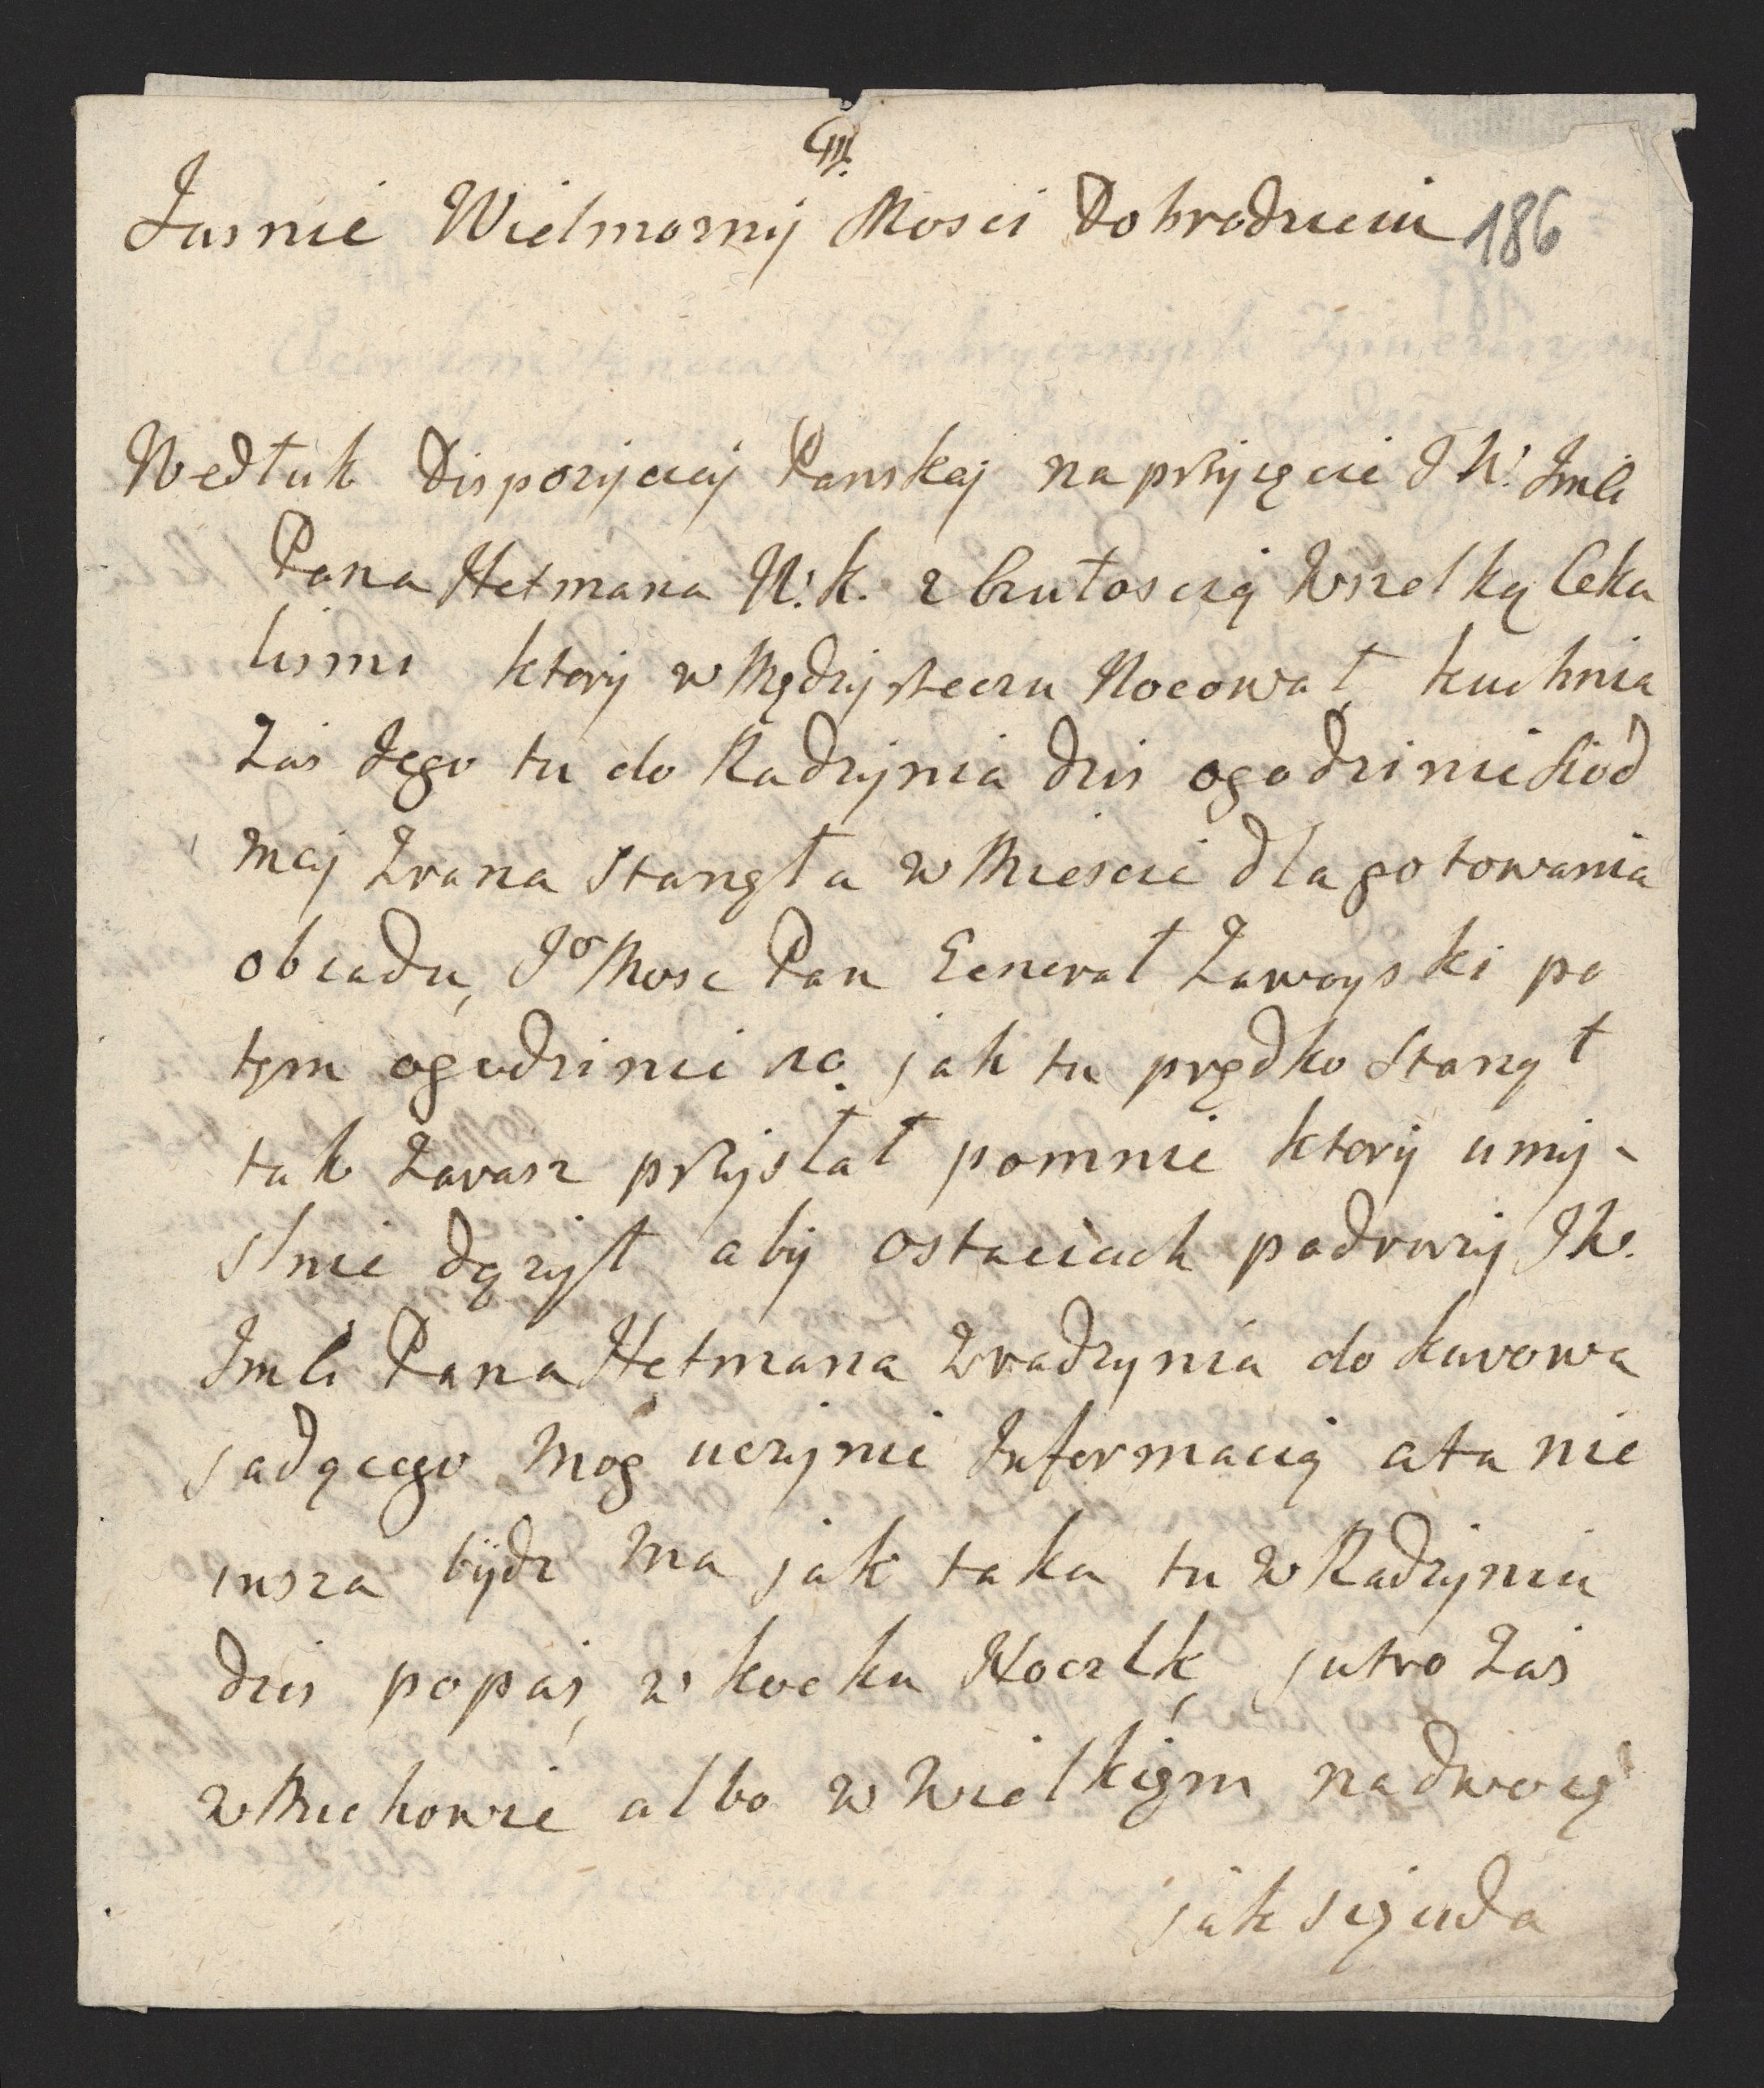 Jasnie Wielmozny Mosci Dobrodzieiu 186
Wedłuk Dispozyciej Panskej na przyięcie J W. Jmci
Pana Hetmana W. k. z czułoscią Wszelką Czeka
lismi ktory w Mędzyrzeczu Nocował, kuchnia
Zas Jego tu do Radzynia dzis o godzinie siod
mej Zrana Stanęła w Miescie dla gotowania
obiadu, Jo Mosc Pan General Zawoyski po
tym o godzinie 10. jak tu prędko Stanął
tak Zarasz przysłał pomnie ktory umy-
slnie dązył aby o staciach podrozy JW.
Jmci Pana Hetmana Z radzynia do kurowa
jadącego Mog uczynic Informacią ata nie
insza bydz ma jak taka tu w Radzyniu
dzis popas, w kocku Noclk, jutro Zas
w Michowie albo w Wielkięm nad wodą
jak się uda